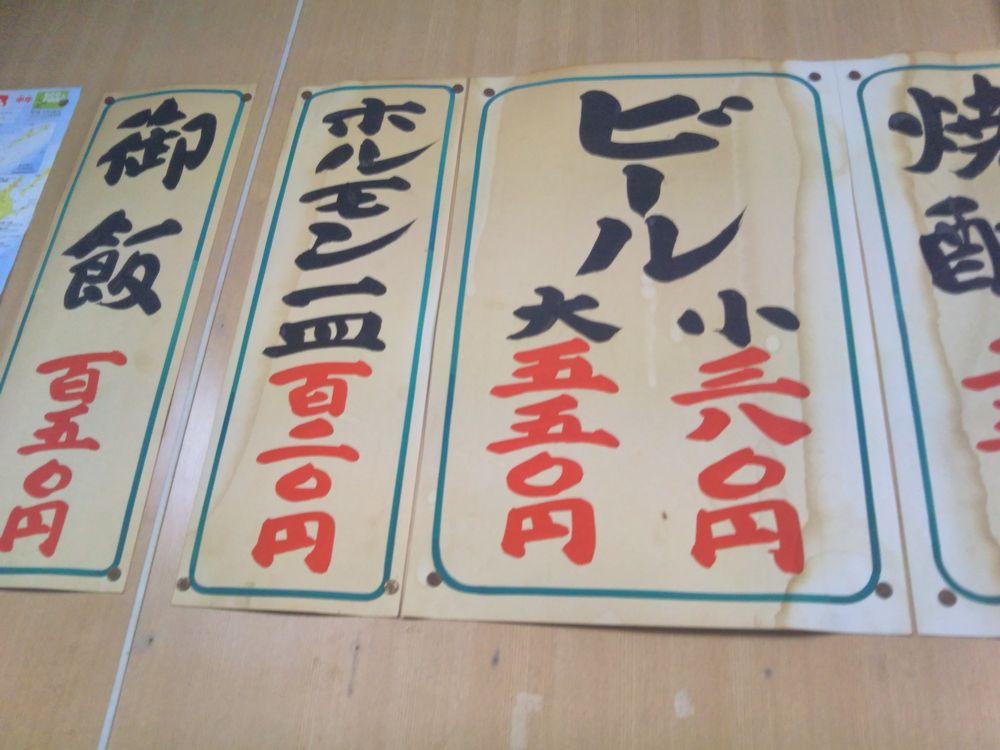 焼酎
ビール
小 三八〇円
大 五五〇円
ホルモン一皿 百二〇円
御飯 百五〇円